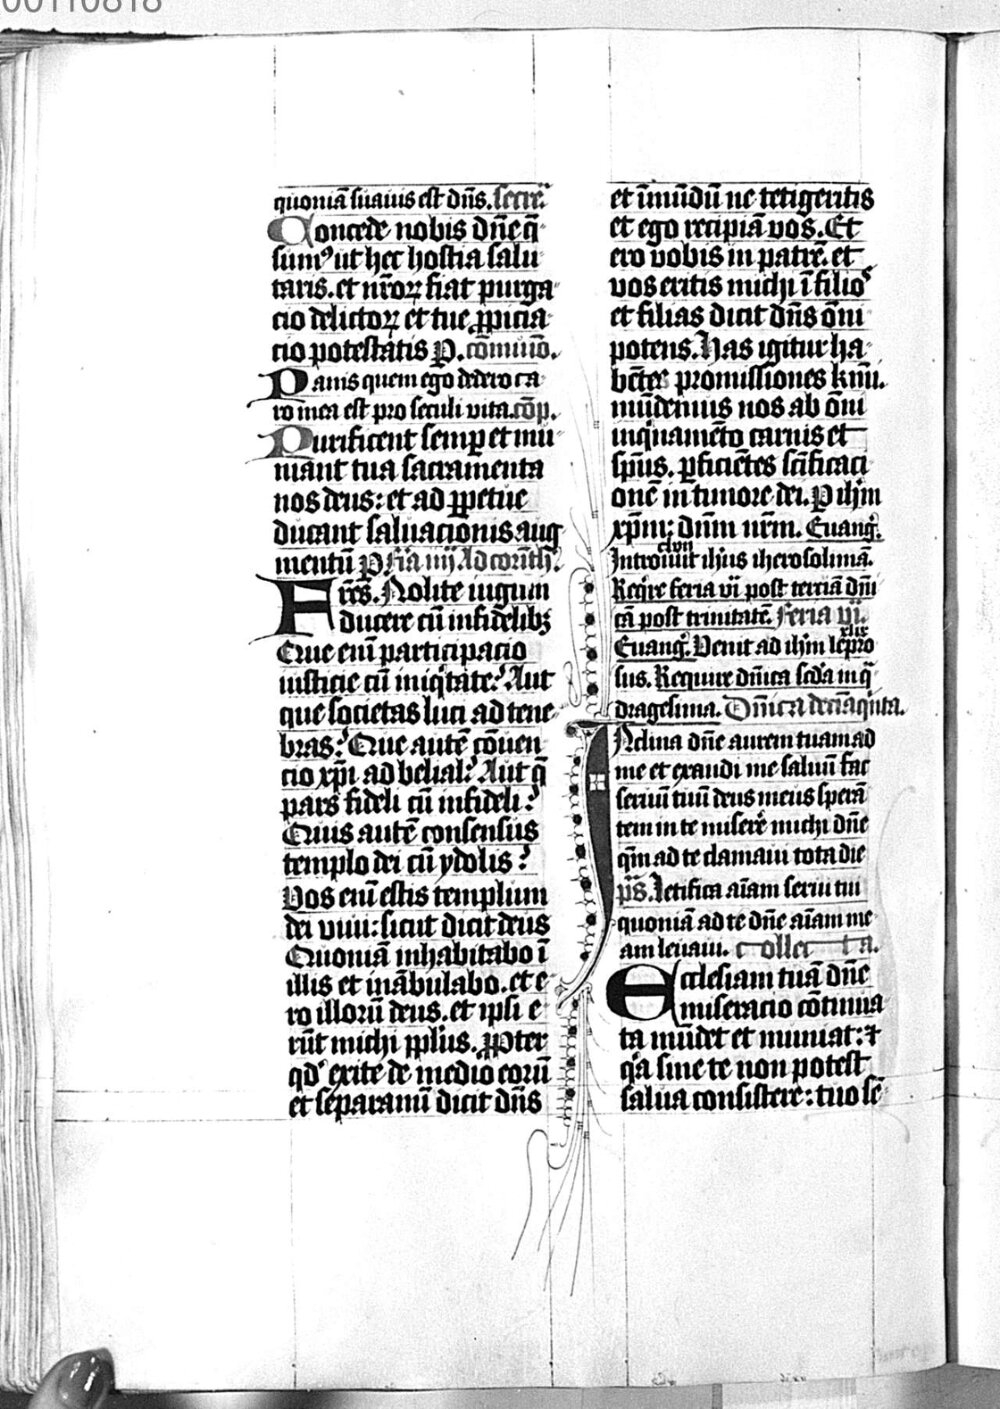 00110818
quoniā suauis est dn̄s. secre͞
Concede nobis dn̄e q̄
sumꝰ ut hec hostia salu
taris. et nr̄oꝝ fiat purga
cio delictoꝝ et tue ꝓpicia
cio potestatis P. cōmuīo.
Panis quem ego dedero ca
ro mea est pro seculi vita. cōp.
Purificent semꝑ et mu
niant tua sacramenta
nos deus: et ad ꝑpetue
ducant saluacionis aug
mentū P. Fīa iiij Ad corinth̄.
Fr̄es. Nolite iugum
ducere cū infidelibꝫ
Que eni͞ participacio
iusticie cū iniq̇tate? Aut
que societas luci ad tene
bras? Que autē cōuen
cio xp̄i ad belial? Aut q̄
pars fideli cū infideli?
Quis autē consensus
templo dei cū ydolis?
Vos eni͞ estis templum
dei viui: sicut dicit deus
Quoniā inhabitabo ī
illis et inābulabo. et e
ro illorū deus. et ipsi e
rūt michi ppl̄us. ꝓpter
qd̓ exite de medio eorū
et separamī dicit dn̄s
et īmūdū ne tetigeritis
et ego recipiā vos. Et
ero vobis in patrē. et
vos eritis michi ī filios
et filias dicit dn̄s om̄i
potens. Has igitur ha
bētes promissiones kmī.
mūdemus nos ab om̄i
inquinamēto carnis et
sp̄us. ꝑficiētes sc̄ificaci
onē in timore dei. P ih̄m
xp̄m; dn̄m nr̄m. Euang̓.
clvii
Introiuit ih̄us iherosolimā.
Req̇re feria vī post terciā dn̄i
cā post trinitatē. Feria vi.
xlix
Euang̓. Venit ad ih̄m lepro
sus. Require dn̄ica sc̄da in q̄
dragesima. Dn̄ica deciaq̇nta.
Inclina dn̄e aurem tuam ad
me et exaudi me saluū fac
seruū tuū deus meus sperā
tem in te miserē michi dn̄e
qm̄ ad te clamaui tota die
p̄s. Letifica aīam serui tui
quoniā ad te dn̄e aīam me
am leuaui. Collecta.
Ecclesiam tuā dn̄e
miseracio cōtinua
ta mūdet et muniat: ⁊
q̇a sine te non potest
salua consistere: tuo sē